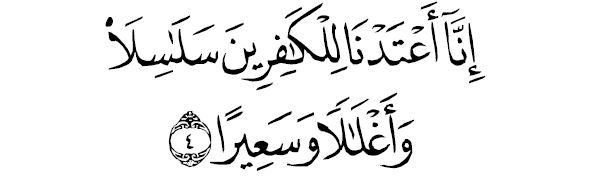 إِنَّآ أَعْتَدْنَا لِلْكَـٰفِرِينَ سَلَـٰسِلَا۟
وَأَغْلَـٰلًا وَسَعِيرًا ٤